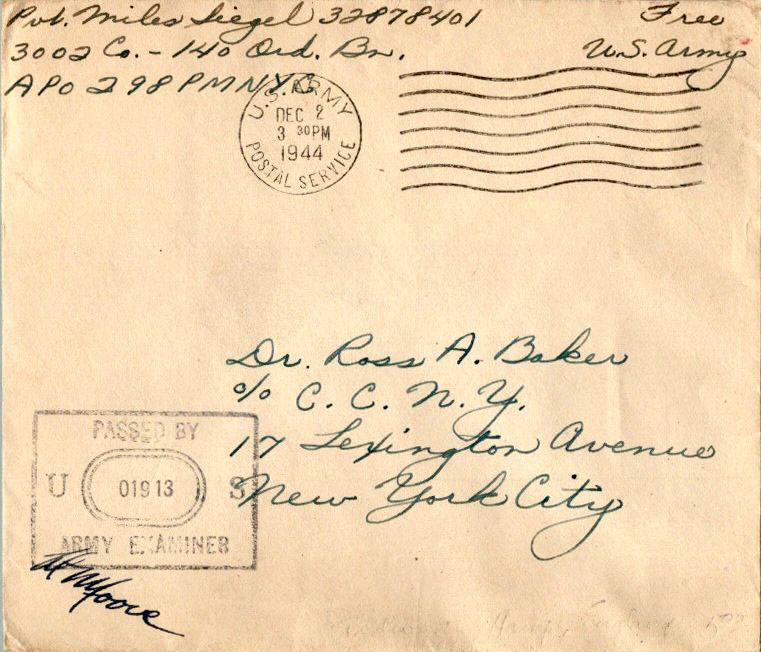 Pvt. Miles Siegel 32878401
Free
3002 Co. - 140 Ord. Bn.
U.S. Army
APO 298 PMNY.C
U.S. ARMY
DEC 2
3 30PM
1944
POSTAL SERVICE
Dr. Ross A. Baker
c/o C. C. N. Y.
17 Lexington Avenue
New York City
PASSED BY
U 01913 S
ARMY EXAMINER
Moore